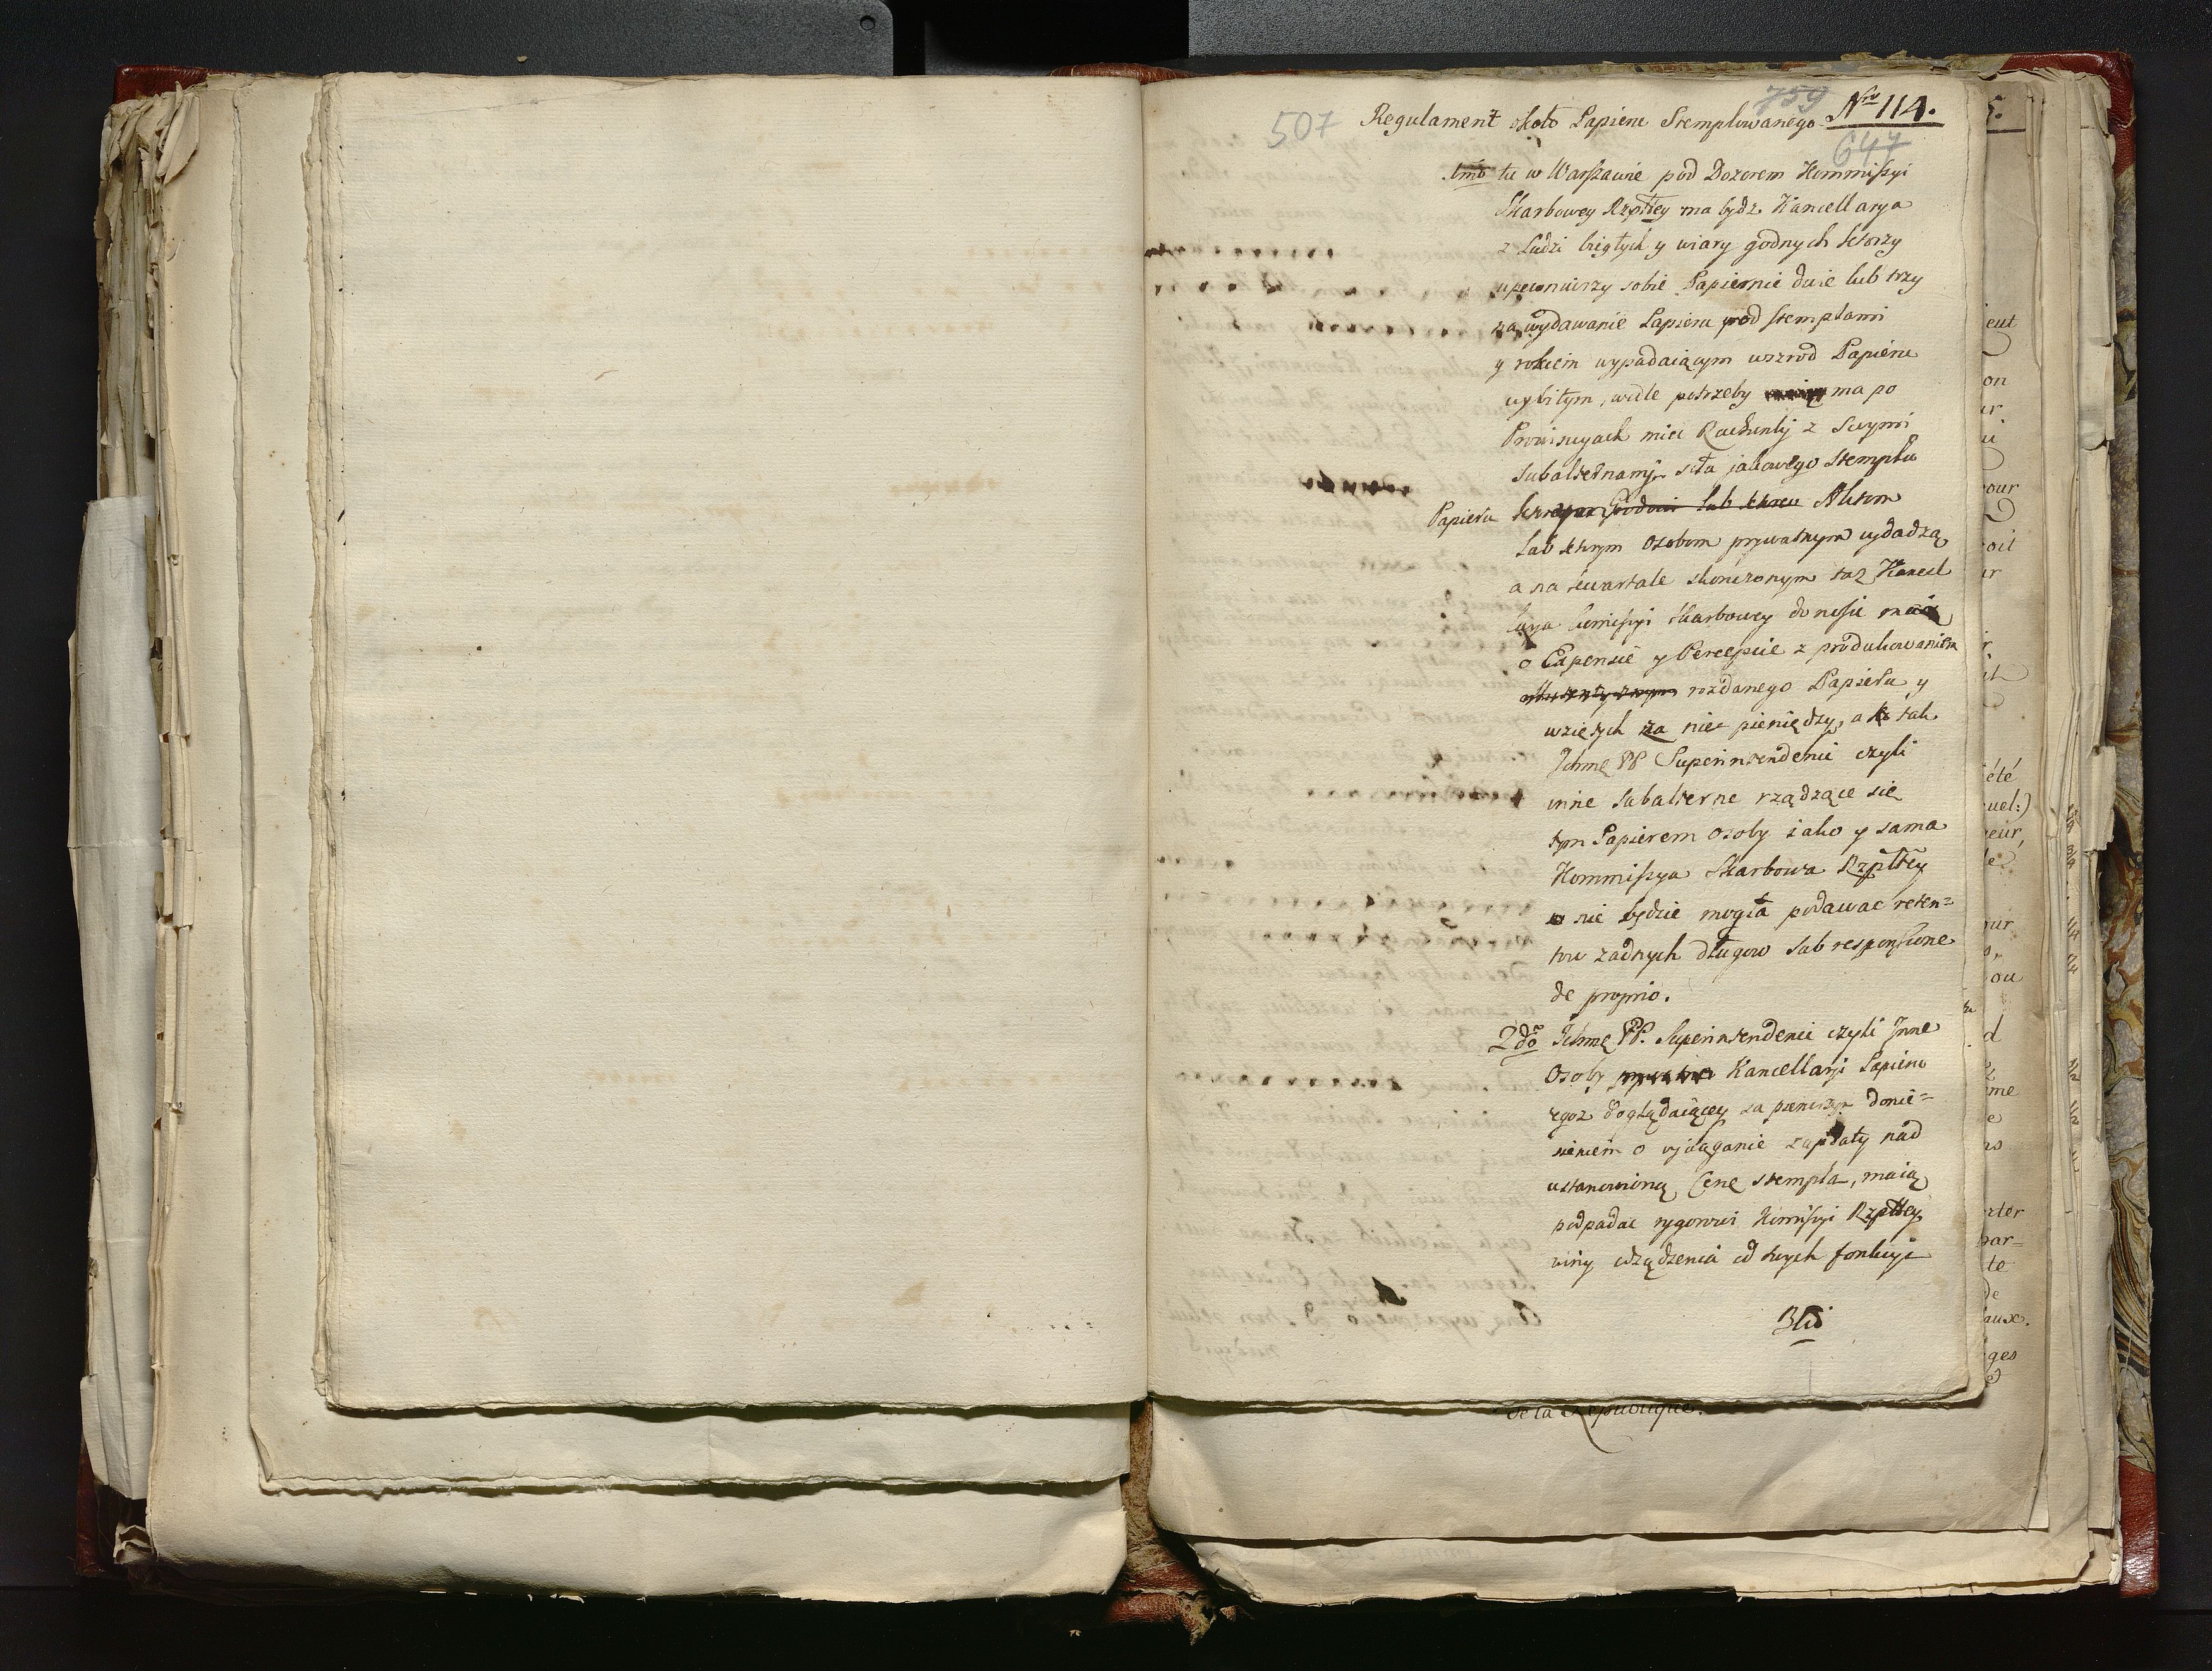 759
507 Regulament około Papieru Stemplowanego Nro 114.
647
1mo tu w Warszawie pod Dozorem Kommissyi
Skarbowey Rzptey ma bydz Kancellarya
z Ludzi biegłych y wiary godnych ktorzy
upewniwszy sobie Papiernie dwie lub trzy
za wydawanie Papieru pod stemplami
y rokiem wypadaiącym wszrod Papieru
wybitym, wedle potrzeby ma po
Prowincyach miec Rachunki z Swymi
Subalternamy siła jakowego Stemplu
Papieru lub Aktom
lub ktorym Osobom prywatnym wydadzą
a na kwartale skonczonym taz Kancel
larya Komissyi Skarbowey doniesie
o Expensie y Percepcie z produkowaniem
rozdanego Papieru y
wziętych za nie pieniędzy, a tak
Ichmę PP Superintendenci czyli
inne Subalterne rządzące się
tym Papierem osoby iako y sama
Kommissya Skarbowa Rzptey
nie będzie mogła podawac reten=
tow zadnych długow sub responsione
de proprio.
2do Ichmę PP. Superintendenci czyli Inne
Osoby Kancellarji Papieru
tegoz doglądaiącey za pierwszym donie=
sieniem o wyciąganie zapłaty nad
ustanowioną Cenę stempla, maią
podpadac rygorowi Komissyi Rzptey
winy odsądzenia od swych funkcyi
3tio
de la Republique.